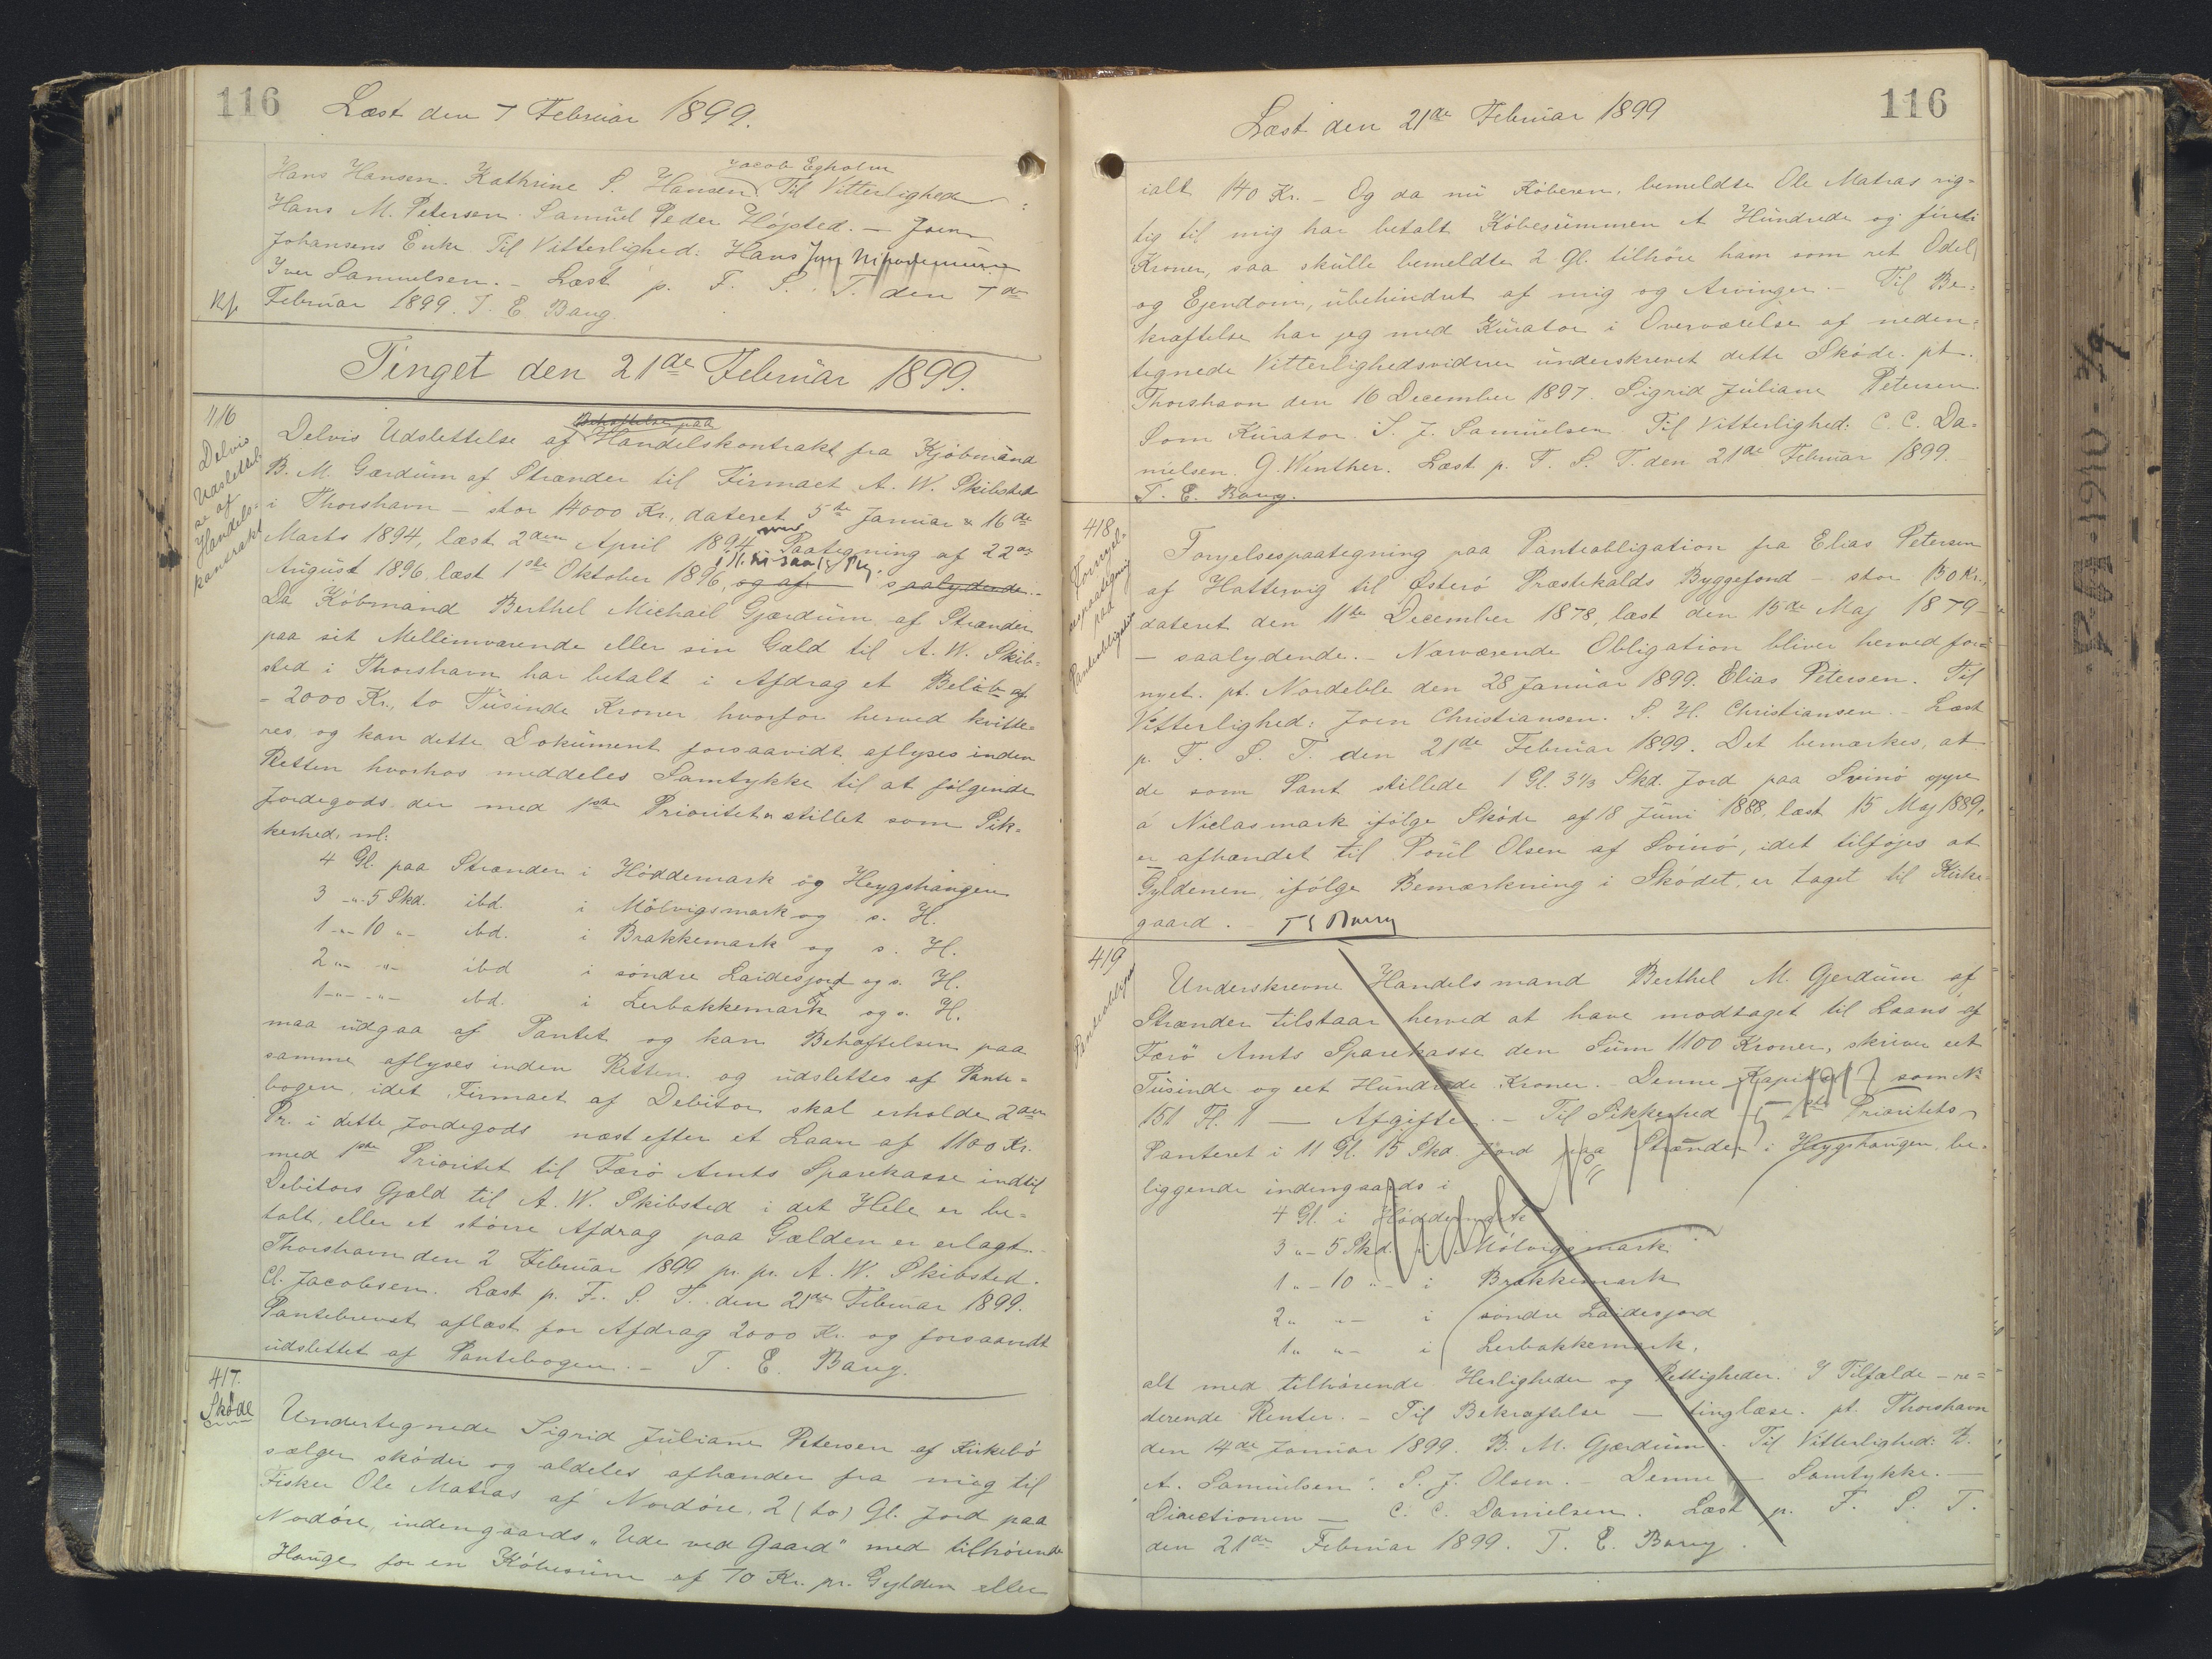 116
Læst den 7 Februar 1899.
Jacob Egholm
Hans Hansen. Kathrine S. Hansen Til Vitterlighed:
Hans M. Petersen. Samuel Peder Højsted. — Joen
Johansens Enke Til Vitterlighed: Hans
Iver Samuelsen. — Læst p. F. S. T. den 7de
Februar 1899. T. E. Bang.
Tinget den 21de Februar 1899.
416
Delvis
Udslettel
se af
Handels-
kontrakt
Behæftelse paa
Delvis Udslettelse af Handelskontrakt fra Kjöbmand
B. M. Gærdum af Strænder til Firmaet A. W. Skibsted
i Thorshavn — stor 14000 Kr., dateret 5te Januar & 16de
Marts 1894, læst 2den April 1894 Paategning af 22de
August 1896, læst 1ste Oktober 1896, og af saalydende. —
Da Köbmand Berthel Michael Gjærdum af Strænder
paa sit Mellemværende eller sin Gæld til A. W. Skib-
sted i Thorshavn har betalt i Afdrag et Belöb af
- 2000 Kr., to Tusinde Kroner hvorfor herved kvitte-
res, og kan dette Dokument forsaavidt aflyses inden
Retten hvorhos meddeles Samtykke til at fölgende
Jordegods der med 1ste Prioritet er stillet som Sik-
kerhed, nl:
4 Gl. paa Strænder i Höddemark og Heygshangen
3 -"- 5 Skd. ibd. i Mölvigsmark og s. H.
1 -"- 10 "- ibd. i Brakkemark og s. H.
2 "- "- ibd i söndre Laidesjord og s. H.
1 -"- -"- ibd. i Lerbakkemark og s. H.
maa udgaa af Pantet og kan Behæftelsen paa
samme aflyses inden Retten og udslettes af Pante-
bogen, idet Firmaet af Debitor skal erholde 2den
Pr. i dette Jordegods næst efter et Laan af 1100 Kr.
med 1ste Prioritet til Færö Amts Sparekasse indtil
Debitors Gjæld til A. W. Skibsted i det Hele er be-
talt, eller et större Afdrag paa Gælden er erlagt. —
Thorshavn den 2 Februar 1899 pr. pr. A. W. Skibsted.
Cl. Jacobsen. Læst p. F. S. T. den 21de Februar 1899.
Pantebrevet aflæst for Afdrag 2000 Kr. og forsaavidt
udslettet af Pantebogen. — T. E. Bang.
417.
Sköde
Undertegnede Sigrid Juliane Petersen af Kirkebö
sælger sköder og aldeles afhænder fra mig til
Fisker Ole Matras af Nordöre, 2 (to) Gl. Jord paa
Nordöre, indengaards „Ude ved Gaard" med tilhörende
Hauge for en Köbesum af 70 Kr. pr. Gylden eller
116
Læst den 21de Februar 1899
ialt 140 Kr. — Og da nu Köberen, bemeldte Ole Matras rig-
tig til mig har betalt Köbesummen et Hundrede og fireti
Kroner, saa skulle bemeldte 2 Gl. tilhöre ham som ret Odel
og Ejendom, ubehindret af mig og Arvinger. — Til Be-
kræftelse har jeg med Kurator i Overværelse af neden-
tegnede Vitterlighedsvidner underskrevet dette Sköde. pt.
Thorshavn den 16 December 1897. Sigrid Juliane Petersen.
Som Kurator. S. J. Samuelsen. Til Vitterlighed: C. C. Da-
nielsen. G. Winther. Læst p. F. S. T. den 21de Februar 1899.
T. E. Bang.
418
Fornyel-
sespaategning
paa
Panteobligation
Fornyelsespaategning paa Panteobligation fra Elias Petersen
af Hattervig til Österö Præstekalds Byggefond — stor 150 Kr.,
dateret den 11te December 1878, læst den 15de Maj 1879 —
— saalydende. — Nærværende Obligation bliver herved for-
nyet. pt. Nordeble den 28 Januar 1899. Elias Petersen. Til
Vitterlighed: Joen Christiansen. S. H. Christiansen. — Læst
p. F. S. T. den 21de Februar 1899. Det bemærkes, at
de som Pant stillede 1 Gl. 3 1/3 Skd. Jord paa Svinö oppe
á Niclasmark ifölge Sköde af 18 Juni 1888, læst 15 Maj 1889,
er afhændet til Poul Olsen af Svinö, idet tilföjes at
Gyldenen, ifölge Bemærkning i Sködet, er taget til Kirke-
gaard. — T E Bang
419
Panteobligation
Underskrevne Handelsmand Berthel M. Gjerdum af
Strænder tilstaar herved at have modtaget til Laans af
Færö Amts Sparekasse den Sum 1100 Kroner, skriver eet
Tusinde og eet Hundrede Kroner. Denne Kapital — som No
151 Fl. 1 — Afgifter. — Til Sikkerhed — 1ste Prioritets
Panteret i 11 Gl. 15 Skd. Jord paa Strænder i Heygshangen, be-
liggende indengaards i
4 Gl. i Höddemark
3 "- 5 Skd. i Mölvigsmark
1 "- 10 "- i Brakkemark
2 " "- i söndre Laidesjord
1 " "- i Lerbakkemark,
alt med tilhörende Herligheder og Rettigheder. I Tilfælde — re-
derende Renter. — Til Bekræftelse — tinglæse. pt. Thorshavn
den 14de Januar 1899. B. M. Gjærdum. Til Vitterlighed: B.
A. Samuelsen. S. J. Olsen. — Denne — Samtykke. —
Directionen — C. C. Danielsen. Læst p. F. S. T.
den 21de Februar 1899. T. E. Bang.